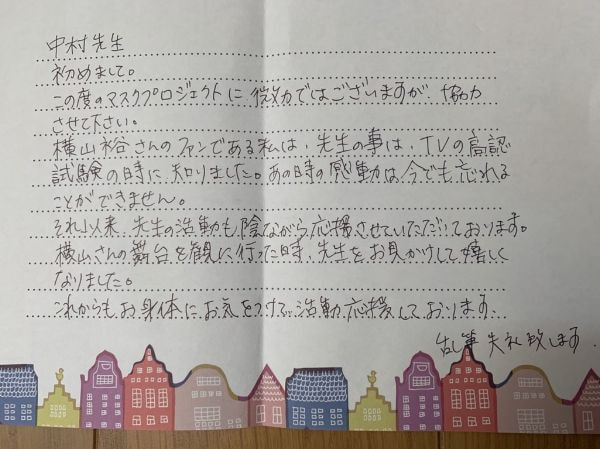 中村先生
初めまして。
この度のマスクプロジェクトに微力ではございますが、協力
させて下さい。
横山裕さんのファンである私は、先生の事は、TVの高認
試験の時に知りました。あの時の感動は今でも忘れる
ことができません。
それ以来、先生の活動も陰ながら応援させていただいております。
横山さんの舞台を観に行った時、先生をお見かけして嬉しく
なりました。
これからもお身体にお気をつけて、活動応援しております。
乱筆失礼致します。